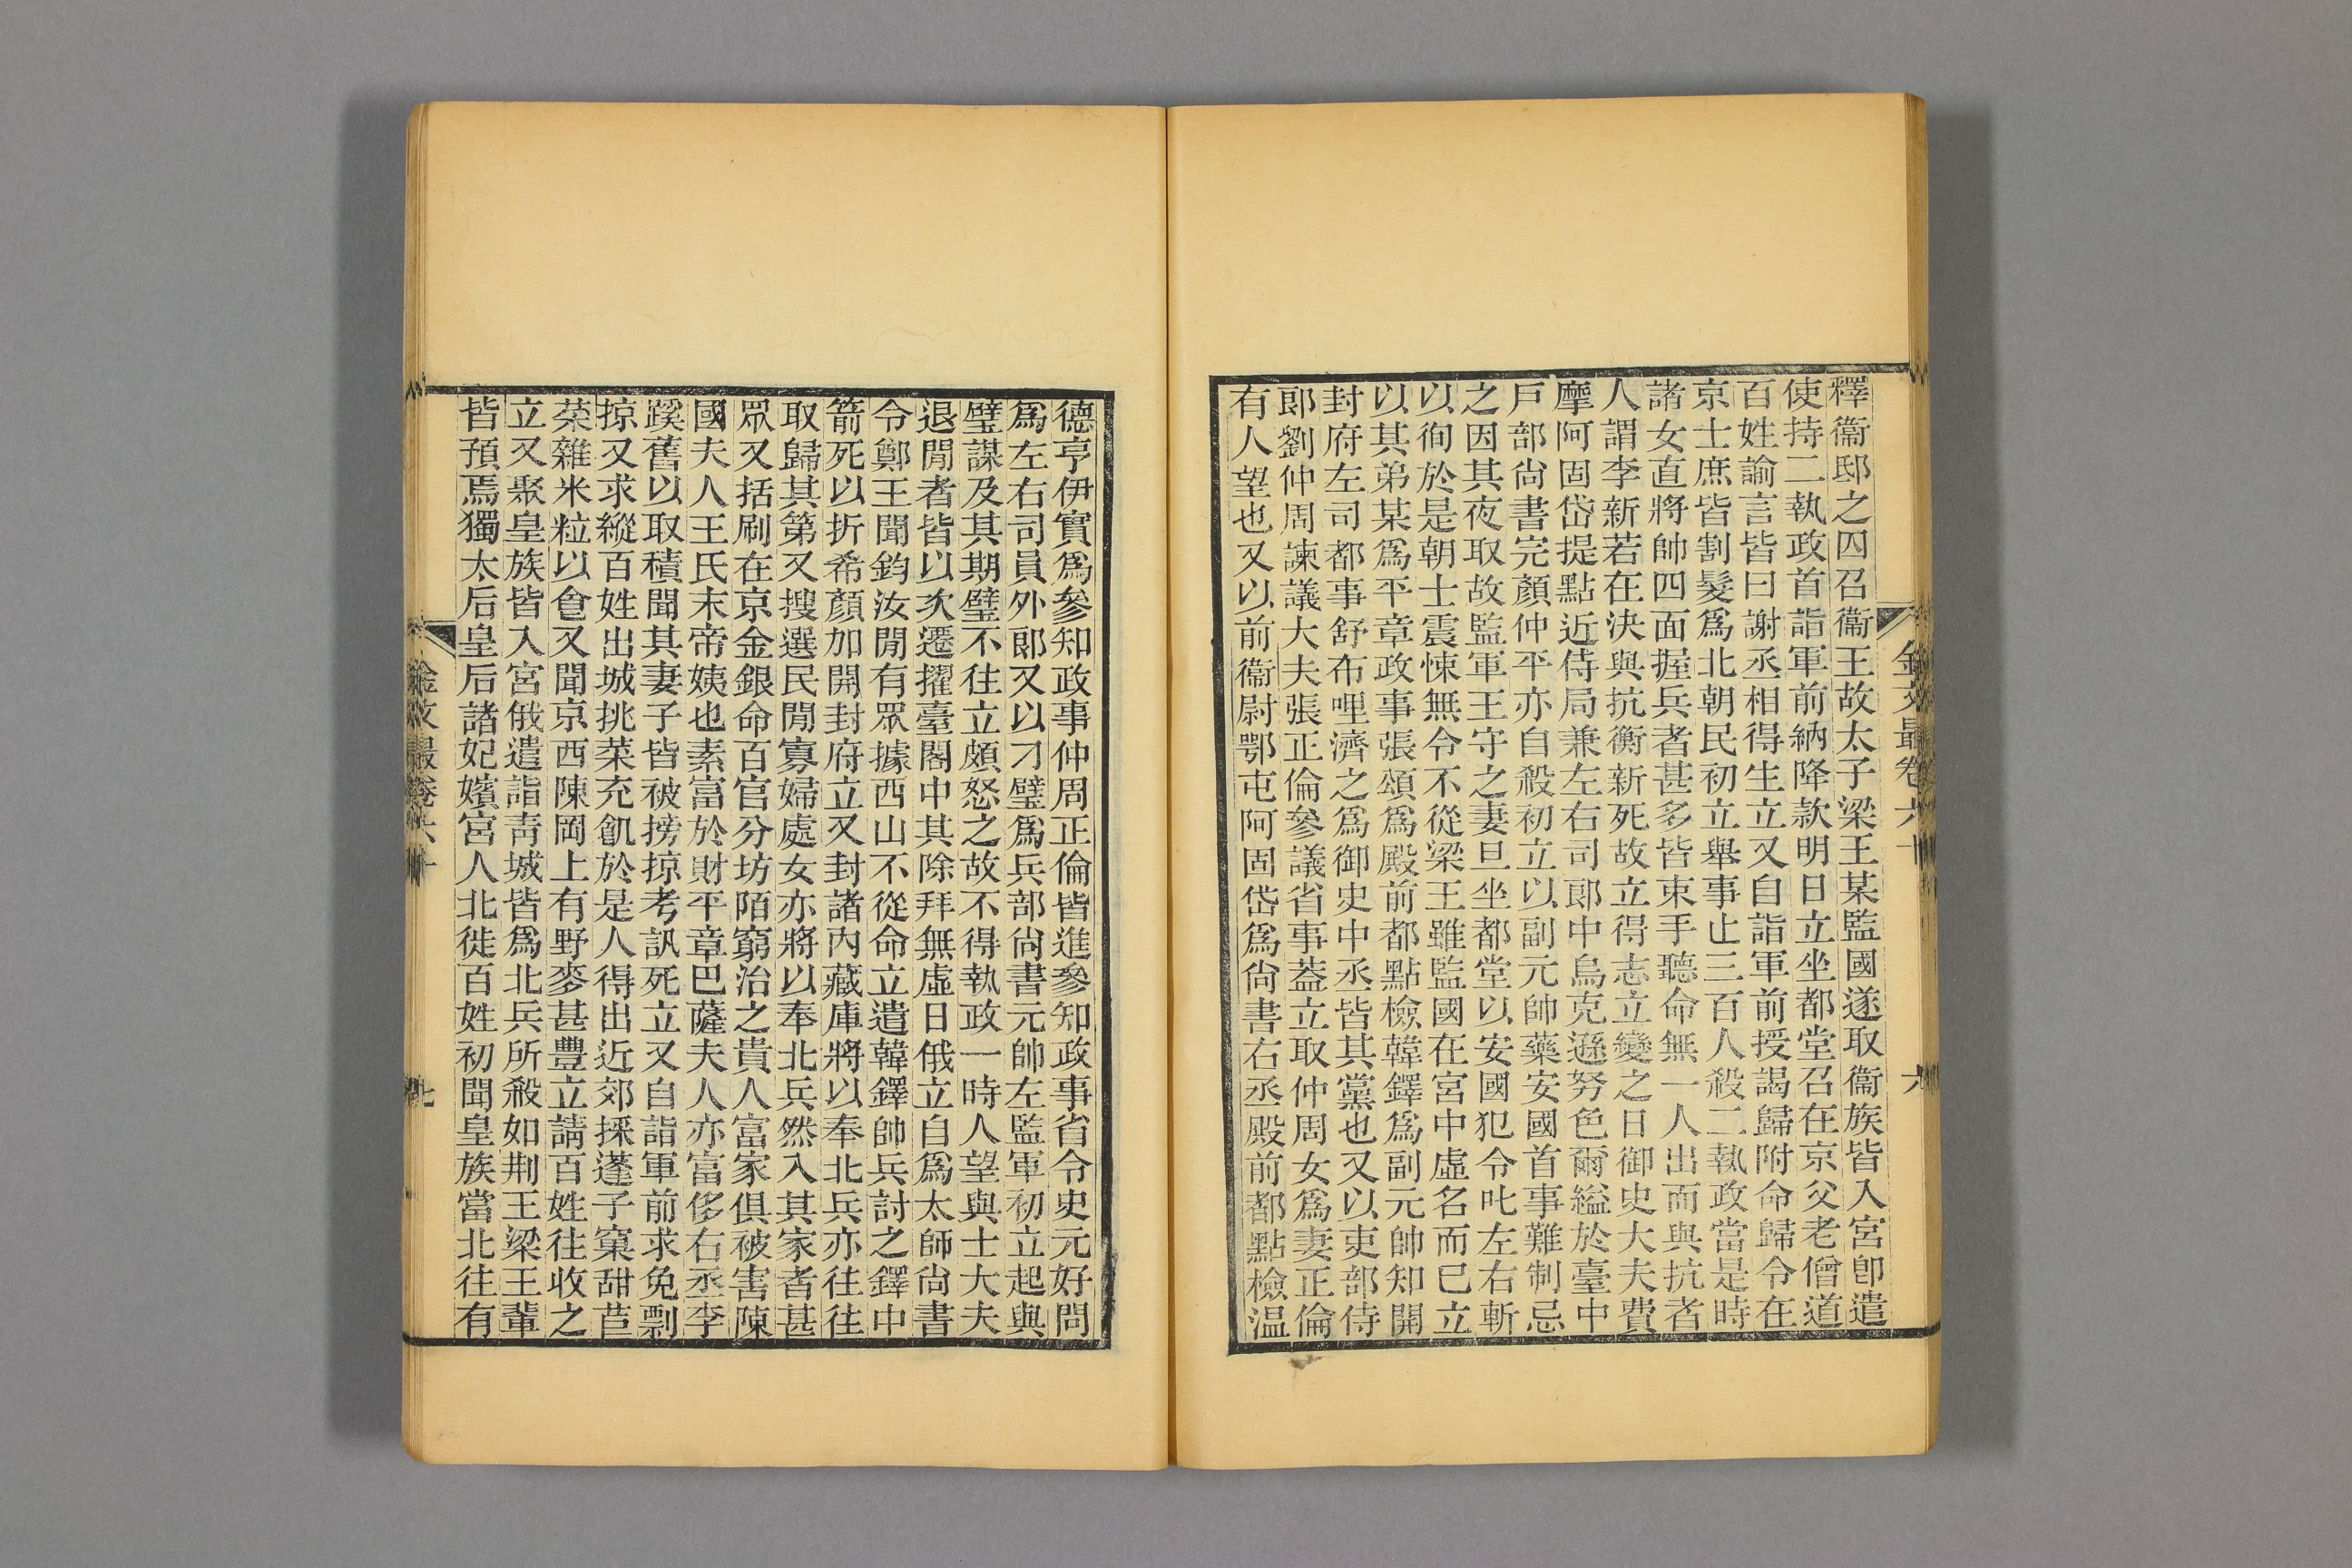 金文最卷六十
六
釋衞邸之囚召衞王故太子梁王某監國遂取衞族皆入宮卽遣
使持二執政首詣軍前納降款明日立坐都堂召在京父老僧道
百姓諭言皆曰謝丞相得生立又自詣軍前授謁歸附命歸令在
京士庶皆割髮爲北朝民初立舉事止三百人殺二執政當是時
諸女直將帥四面握兵者甚多皆束手聽命無一人出而與抗者
人謂李新若在決與抗衡新死故立得志立變之日御史大夫費
摩阿固岱提點近侍局兼左右司郎中烏克遜努色爾縊於臺中
戶部尙書完顏仲平亦自殺初立以副元帥藥安國首事難制忌
之因其夜取故監軍王守之妻旦坐都堂以安國犯令叱左右斬
以徇於是朝士震悚無令不從梁王雖監國在宮中虛名而已立
以其弟某爲平章政事張頌爲殿前都點檢韓鐸爲副元帥知開
封府左司都事舒布哩濟之爲御史中丞皆其黨也又以吏部侍
郎劉仲周諫議大夫張正倫參議省事葢立取仲周女爲妻正倫
有人望也又以前衞尉鄂屯阿固岱爲尙書右丞殿前都點檢温
德亨伊實爲參知政事仲周正倫皆進參知政事省令史元好問
爲左右司員外郎又以刁璧爲兵部尙書元帥左監軍初立起與
璧謀及其期璧不往立頗怒之故不得執政一時人望與士大夫
退閒者皆以次遷擢臺閣中其除拜無虛日俄立自爲太師尙書
令鄭王聞鈞汝閒有眾據西山不從命立遣韓鐸帥兵討之鐸中
箭死以折希顏加開封府立又封諸內藏庫將以奉北兵亦往往
取歸其第又搜選民閒寡婦處女亦將以奉北兵然入其家者甚
眾又括刷在京金銀命百官分坊陌窮治之貴人富家俱被害陳
國夫人王氏末帝姨也素富於財平章巴薩夫人亦富侈右丞李
蹊舊以取積聞其妻子皆被搒掠考訊死立又自詣軍前求免剽
掠又求縱百姓出城挑菜充飢於是人得出近郊採蓬子窠甜苣
菜雜米粒以食又聞京西陳岡上有野麥甚豐立請百姓往收之
立又聚皇族皆入宮俄遣詣靑城皆爲北兵所殺如荆王梁王輩
皆預焉獨太后皇后諸妃嬪宮人北徙百姓初聞皇族當北往有
金文最卷六十
七